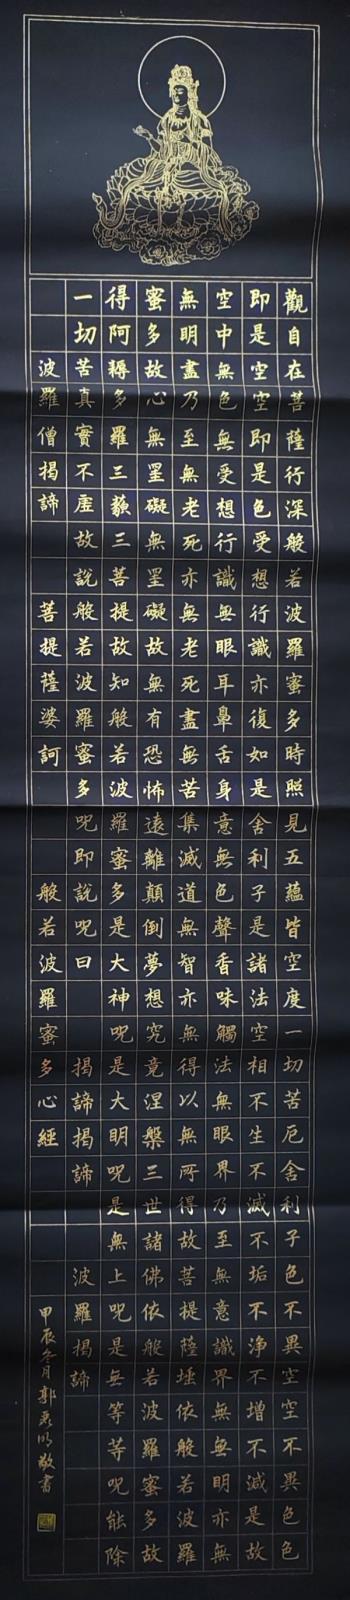 觀自在菩薩行深般若波羅蜜多時照見五蘊皆空度一切苦厄舍利子色不異空空不異色色
即是空空即是色受想行識亦復如是舍利子是諸法空相不生不滅不垢不淨不增不減是故
空中無色無受想行識無眼耳鼻舌身意無色聲香味觸法無眼界乃至無意識界無無明亦無
無明盡乃至無老死亦無老死盡無苦集滅道無智亦無得以無所得故菩提薩埵依般若波羅
蜜多故心無罣礙無罣礙故無有恐怖遠離顛倒夢想究竟涅槃三世諸佛依般若波羅蜜多故
得阿耨多羅三藐三菩提故知般若波羅蜜多是大神呪是大明呪是無上呪是無等等呪能除
一切苦真實不虛故說般若波羅蜜多呪即說呪曰 揭諦揭諦 波羅揭諦
波羅僧揭諦 菩提薩婆訶 般若波羅蜜多心經
甲辰冬月郭明敬書